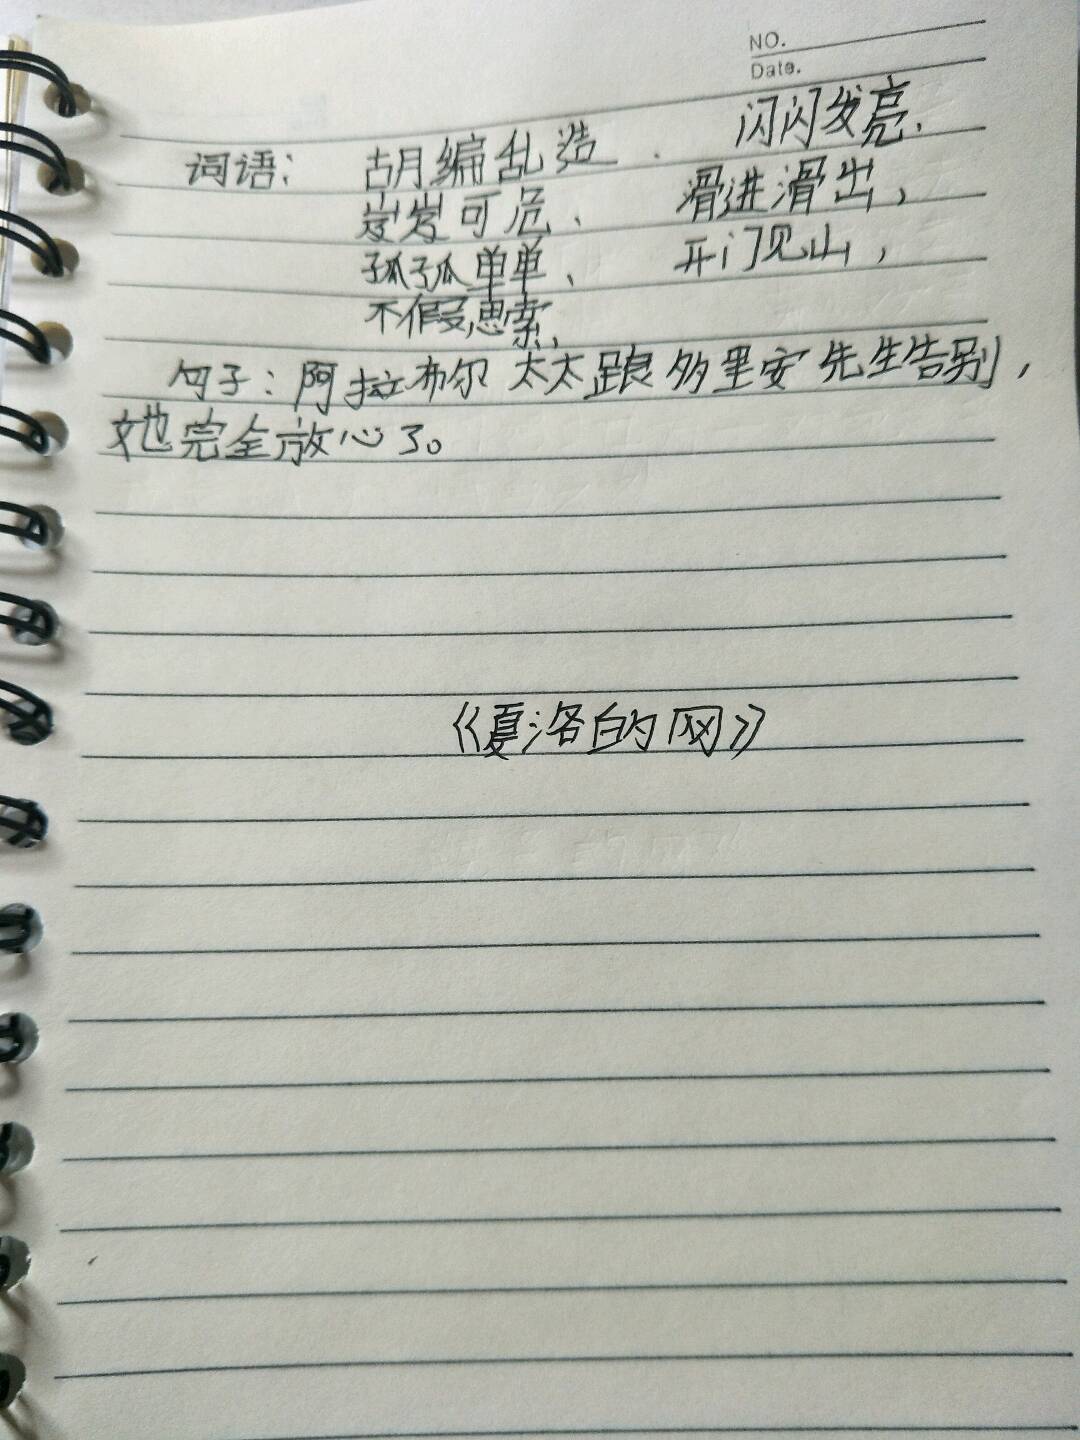 NO.
Date.
词语：胡编乱造、闪闪发亮、
岌岌可危、滑进滑出，
孤孤单单、开门见山，
不假思索、
句子：阿拉布尔太太跟多里安先生告别，
她完全放心了。
《夏洛的网》